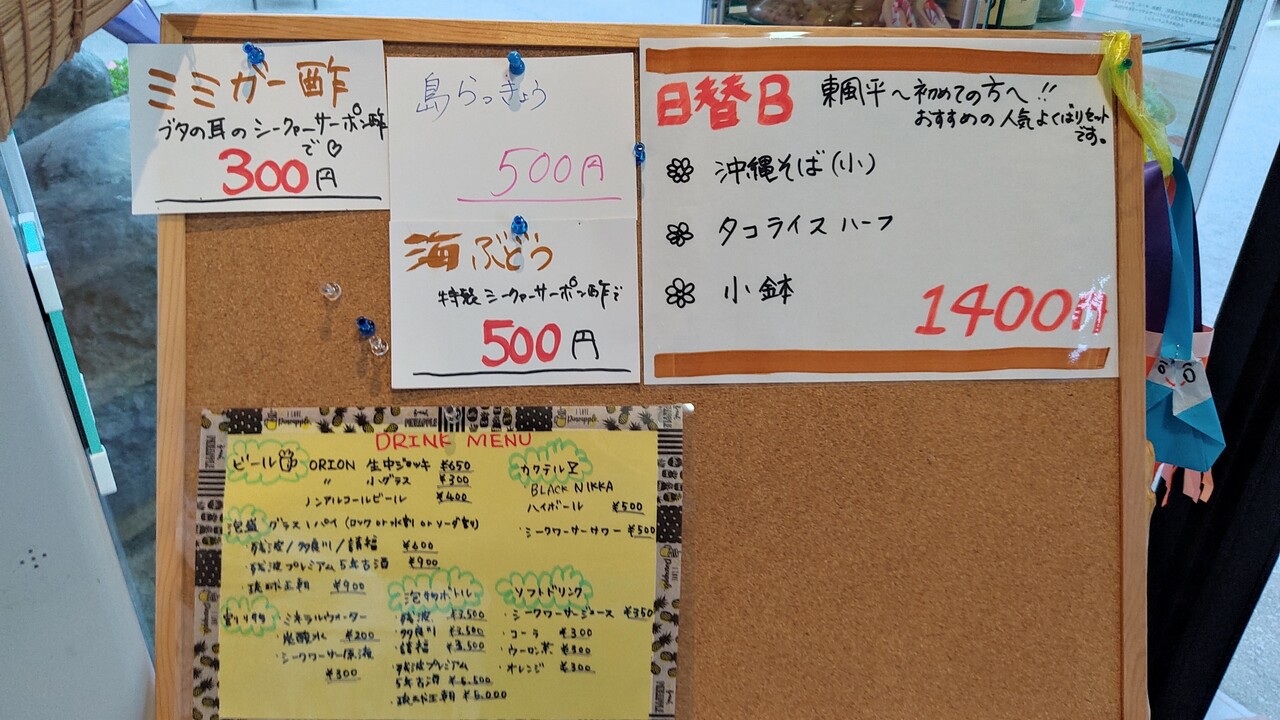 ミミガー酢
ブタの耳のシークァーサーポン酢
で♡
300円
島らっきょう
500円
海ぶどう
特製シークァーサーポン酢で
500円
日替B
東風平〜初めての方へ!!
おすすめの人気よくばりセット
です。
沖縄そば(小)
タコライス ハーフ
小鉢
1400円
DRINK MENU
ビール
ORION 生中ジョッキ ¥650
〃 小グラス ¥300
ノンアルコールビール ¥400
泡盛 グラス1パイ (ロック or 水割 or ソーダ割)
・残波/多良川/請福 ¥600
・残波プレミアム5年古酒 ¥900
・琉球王朝 ¥900
割り物
・ミネラルウォーター
・炭酸水 ¥200
・シークワーサー原液
¥300
泡物ボトル
・残波 ¥3,500
・多良川 ¥3,500
・請福 ¥3,500
・残波プレミアム
5年古酒 ¥6,500
・琉球王朝 ¥6,000
カクテル
BLACK NIKKA
ハイボール ¥500
・シークワーサーサワー ¥500
ソフトドリンク
・シークワーサージュース ¥350
・コーラ ¥300
・ウーロン茶 ¥300
・オレンジ ¥300